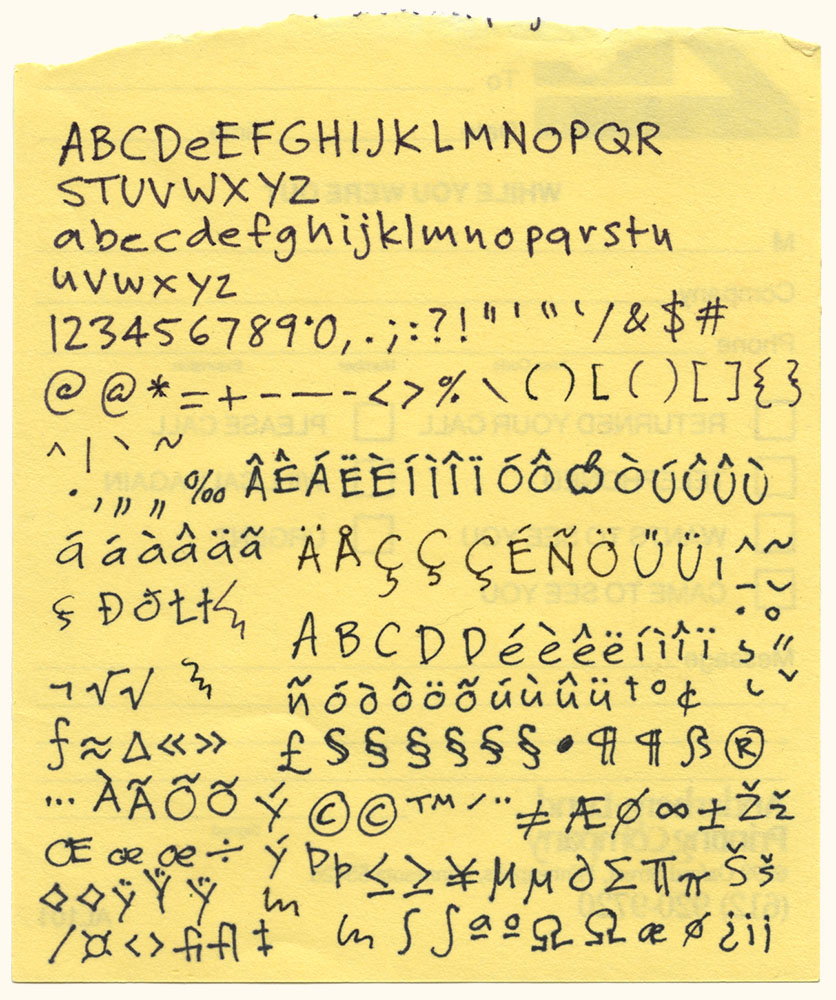 ABCDeEFGHIJKLMNOPQR
STUVWXYZ
abecdefghijklmnopqrstu
uvwxyz
123456789°0,.;:?!"'"‘/&$#
@@*=+-—-<>%\()[()[]{}
^|`~
·‚„„‰ÂÊÁËÈÍÌÎÏÓÔÒÚÛÛÙ
ááàâäãÄÅÇÇÇÉÑÖÜÜ¡^~
şĐðŁł
ABCDDéèêëíìîï
¬√√ñóòôöõúùûü†°¢
ƒ≈∆«»£§§§§§§•¶¶ß®
…ÀÃÕÕÝ©©™´¨≠ÆØ∞±Žž
Œœœ÷ýÞþ≤≥¥µµ∂∑∏πŠš
◊◊ÿŸŸ
/¤<>fifl‡∫∫ªºΩΩæø¿¡¡
To
WHILE YOU WERE OUT
M
Company
Phone
RETURNED YOUR CALL
PLEASE CALL
AGAIN
WANTS TO SEE YOU
CAME TO SEE YOU
Message
Printing Company
(612) 920-9720